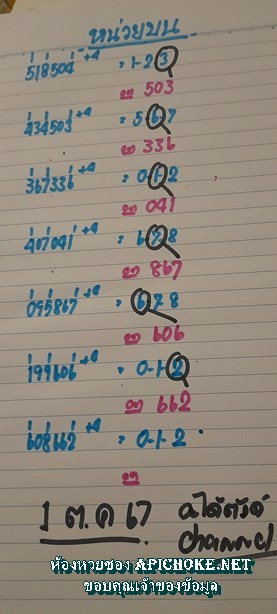 หน่วยบน
518504 +4 = 1-2-3
ஐ 503
434503 +4 = 5 6 7
ஐ 336
367336 +4 = 0 1 2
ஐ 041
407041 +4 = 6 7 8
ஐ 867
095867 +4 = 6 7 8
ஐ 606
199606 +4 = 0-1-2
ஐ 662
608662 +4 = 0-1-2
1 ต.ค 67
channel
ห้องหวยซอง APICHOKE.NET
ขอบคุณเจ้าของข้อมูล